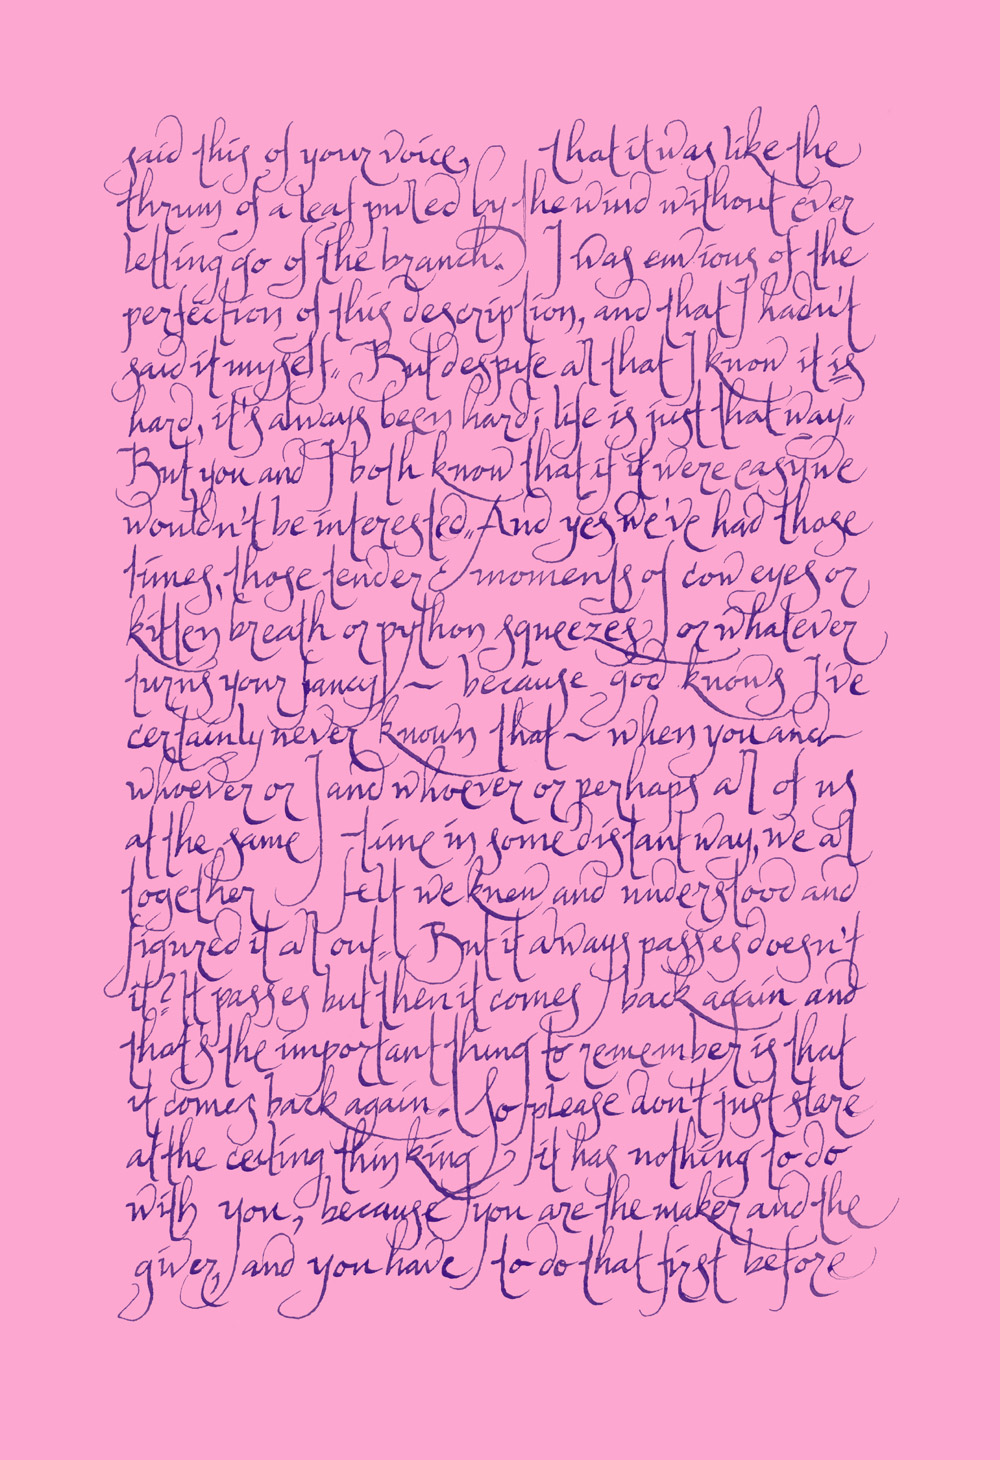 said this of your voice, that it was like the
thrum of a leaf pulled by the wind without ever
letting go of the branch. I was envious of the
perfection of this description, and that I hadn't
said it myself. But despite all that I know it is
hard, it's always been hard; life is just that way.
But you and I both know that if it were easy we
wouldn't be interested. And yes we've had those
times, those tender & moments of cow eyes or
kitten breath or python squeezes or whatever
turns your fancy ~ because god knows I've
certainly never known that ~ when you and
whoever or I and whoever or perhaps all of us
at the same time in some distant way, we all
together felt we knew and understood and
figured it all out. But it always passes doesn't
it? It passes but then it comes back again and
that's the important thing to remember is that
it comes back again. So please don't just stare
at the ceiling thinking it has nothing to do
with you, because you are the maker and the
giver, and you have to do that first before